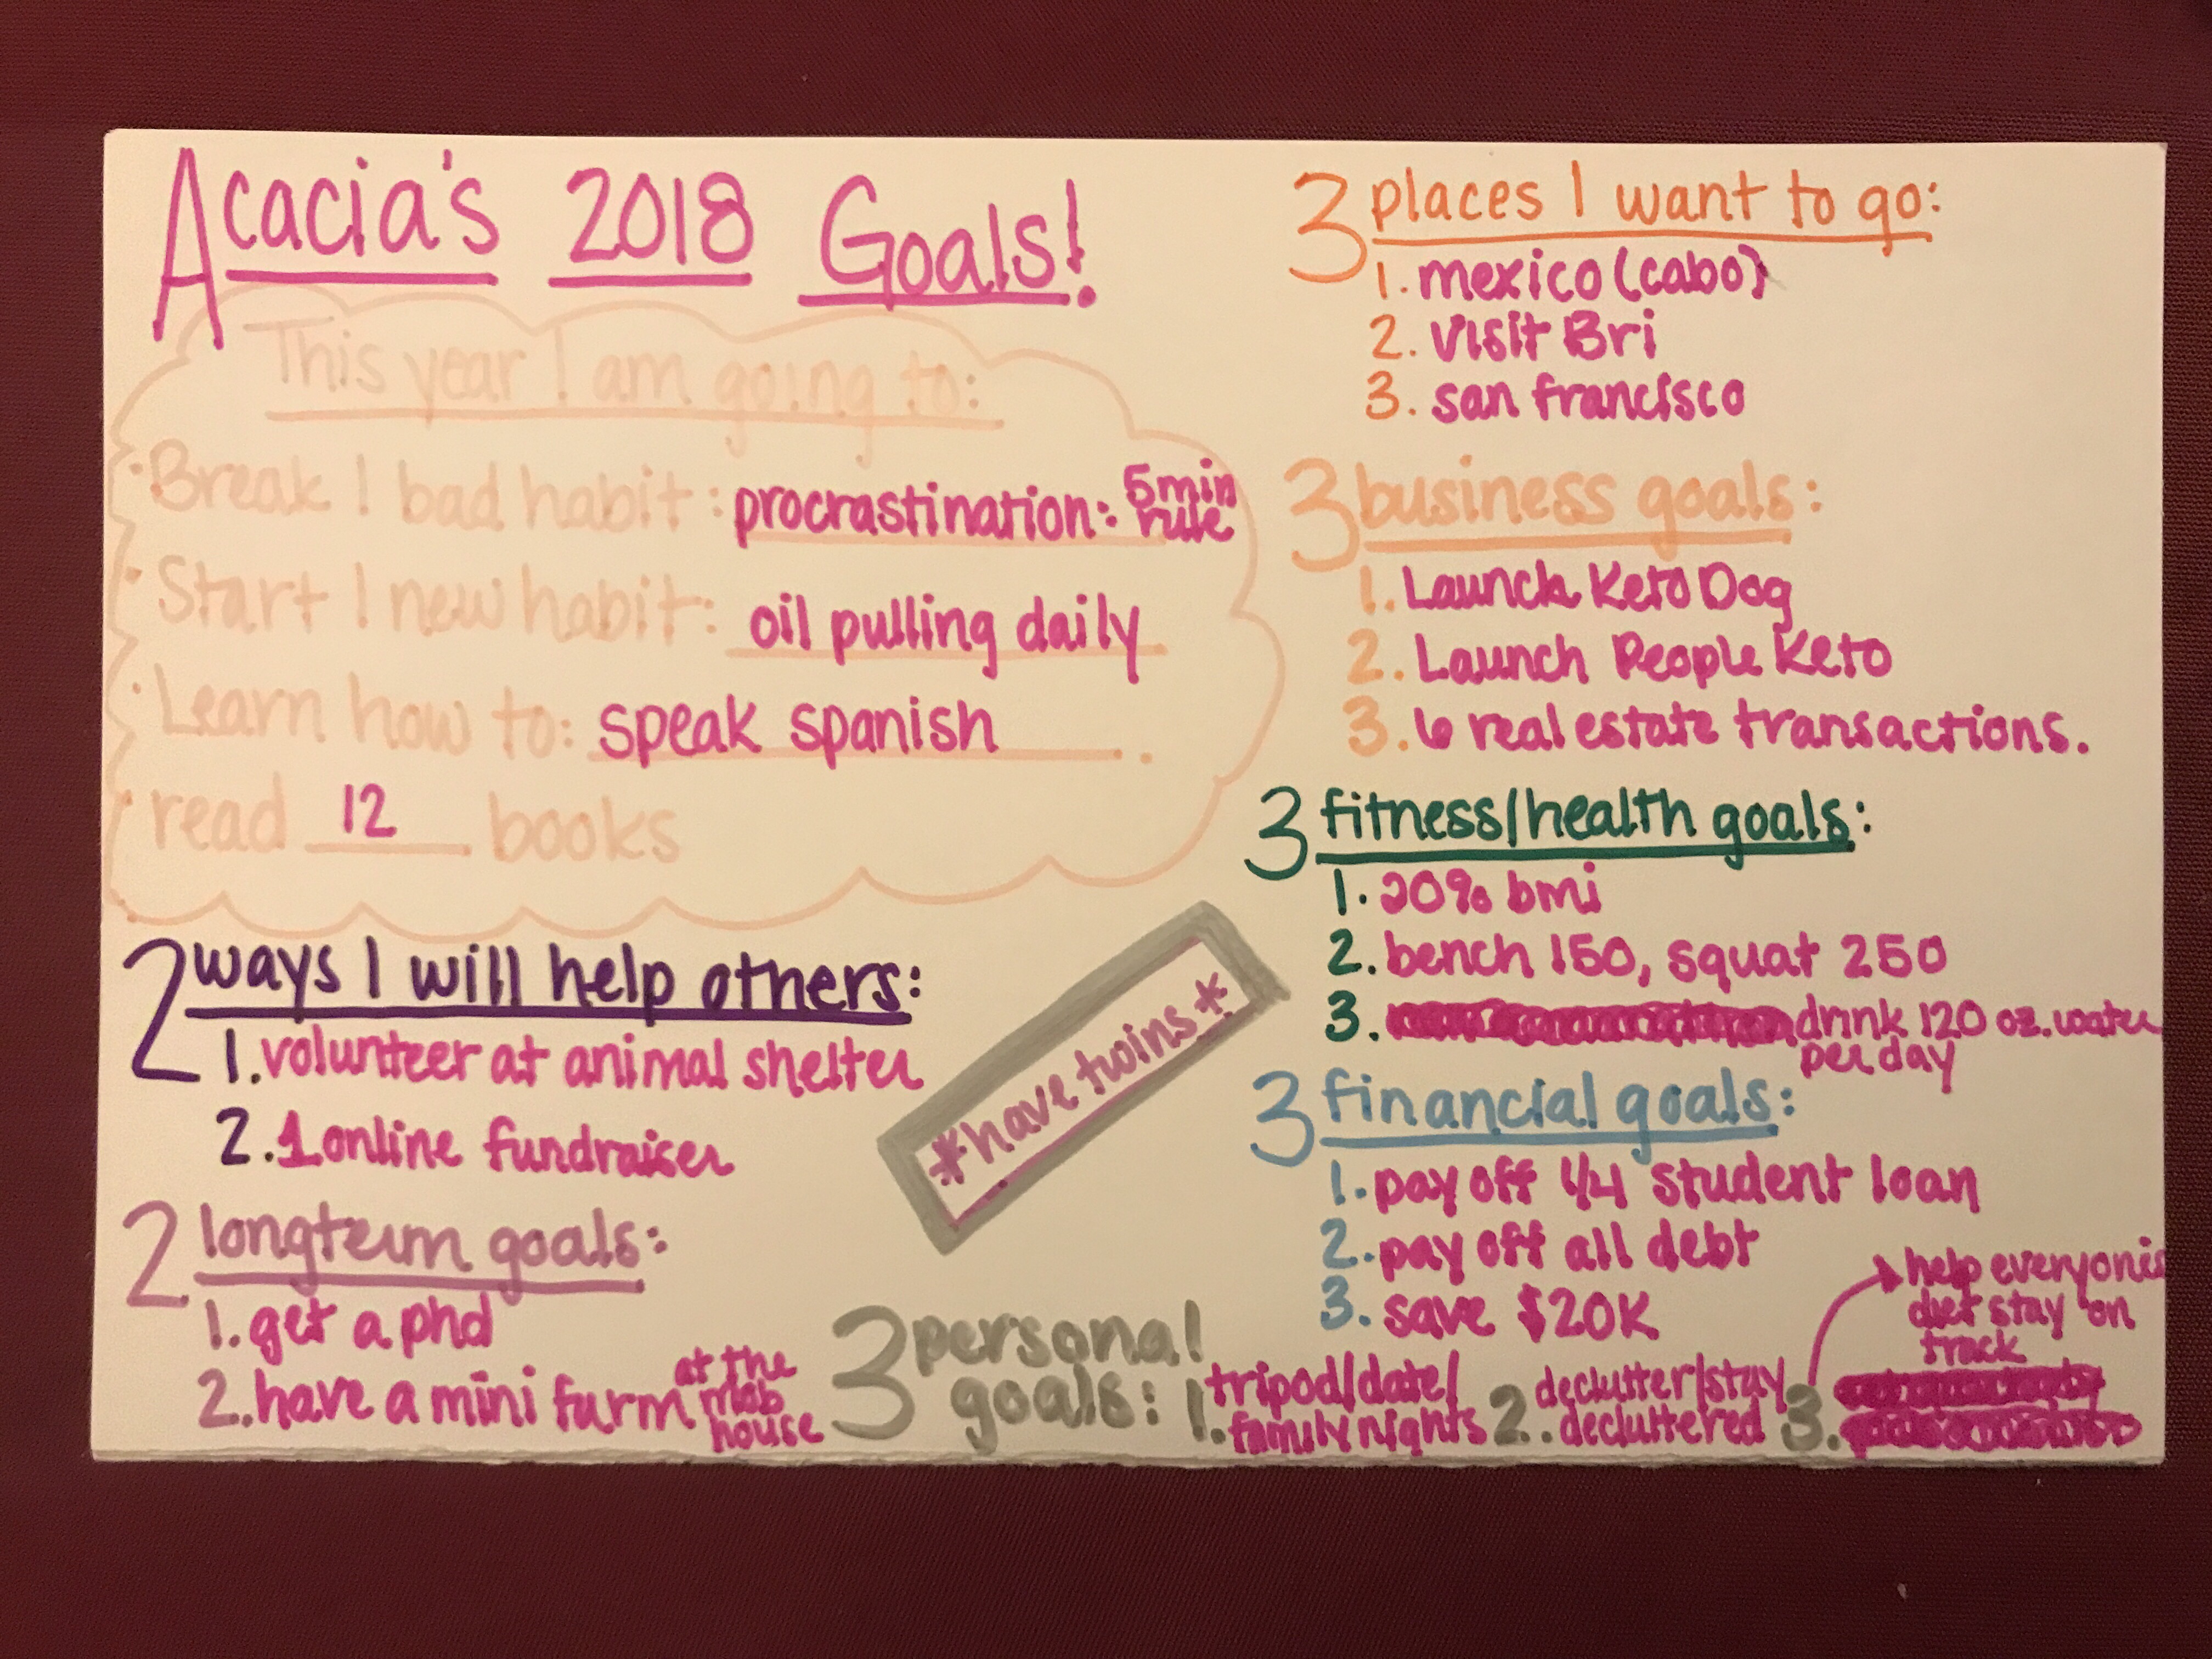 Acacia's 2018 Goals!
This year I am going to:
· Break 1 bad habit: procrastination: 5 min rule
· Start 1 new habit: oil pulling daily
· Learn how to: speak spanish.
· read 12 books
2 ways I will help others:
1. volunteer at animal shelter
2. 1 online fundraiser
2 longterm goals:
1. get a phd
2. have a mini farm at the mob house
*have twins*
3 places I want to go:
1. mexico (cabo)
2. visit Bri
3. san francisco
3 business goals:
1. Launch Keto Dog
2. Launch People Keto
3. 6 real estate transactions.
3 fitness/health goals:
1. 20% bmi
2. bench 150, squat 250
3. drink 120 oz. water
per day
3 financial goals:
1. pay off 1/4 student loan
2. pay off all debt
3. save $20K
3 personal
goals: 1. tripod/date/
family nights
2. declutter/stay
decluttered
3. help everyones
diet stay on
track